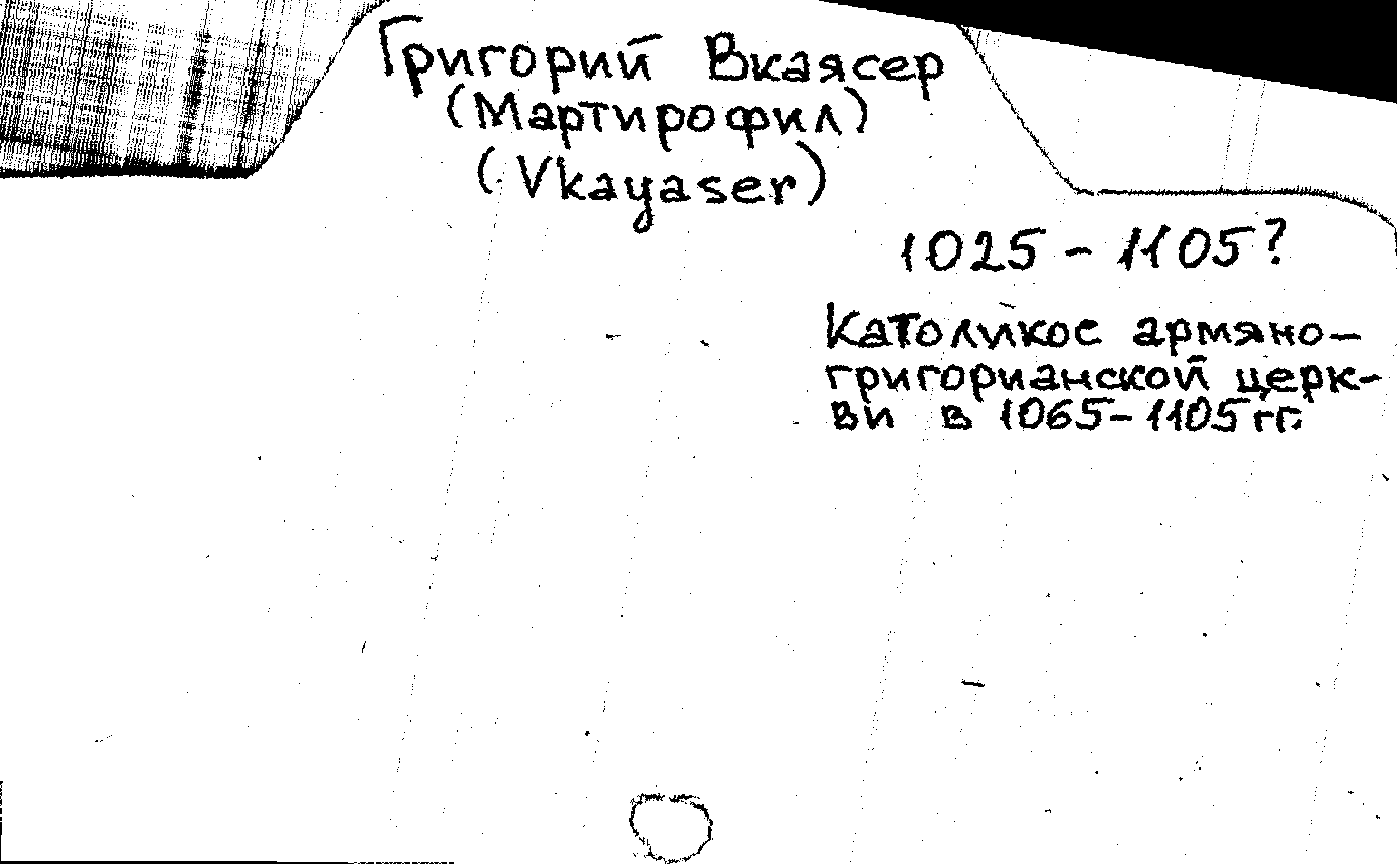 Григорий Вкаясер
(Мартирофил)
(Vkayaser)
1025 - 1105?
Католикос армяно-
григорианской церк-
ви в 1065-1105 гг.